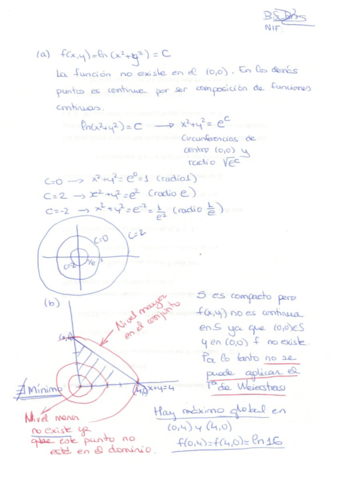 NIF
(a) f(x,y)=ln(x²+y²)=C
La función no existe en el (0,0). En los demás
puntos es continua por ser composición de funciones
continuas.
ln(x²+y²)=C → x²+y²=e^C
Circunferencias de
centro (0,0) y
radio √e^C
C=0 → x²+y²=e⁰=1 (radio 1)
C=2 → x²+y²=e² (radio e)
C=-2 → x²+y²=e⁻²=1/e² (radio 1/e)
C=0
C=2
C=-2
(b)
S es compacto pero
f(x,y) no es continua
en S ya que (0,0)∈S
y en (0,0) f no existe.
Por lo tanto no se
puede aplicar el
Tª de Weierstrass
Nivel mayor
en el conjunto
(0,4)
∄ Mínimo
(4,0)
x+y=4
Nivel menor
no existe ya
que este punto no
está en el dominio.
Hay máximo global en
(0,4) y (4,0)
f(0,4)=f(4,0)=ln 16